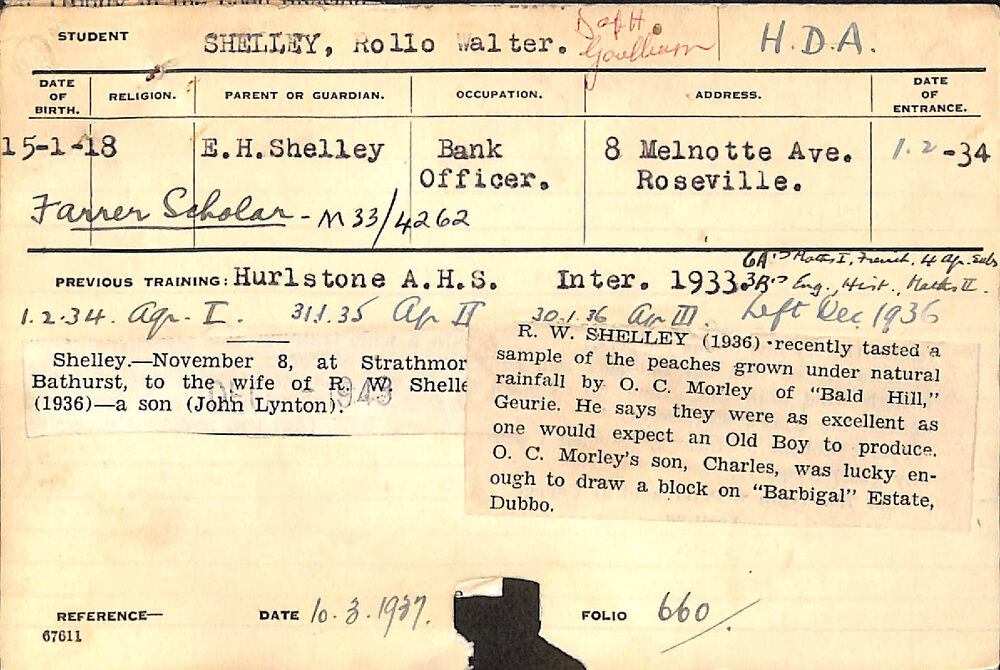 STUDENT SHELLEY, Rollo Walter. H.D.A.
DATE OF BIRTH. RELIGION. PARENT OR GUARDIAN. OCCUPATION. ADDRESS. DATE OF ENTRANCE.
15-1-18 E.H.Shelley Bank Officer. 8 Melnotte Ave. Roseville. 1.2-34
Farrer Scholar - M33/4262
6A's Maths I, French, 4 Ag. Subs
PREVIOUS TRAINING: Hurlstone A.H.S. Inter. 1933. 3B's Eng., Hist., Maths II.
1.2.34. Agr. I. 31.1.35 Ag II 30.1.36 Ag III. Left Dec 1936
Shelley.—November 8, at Strathmor
Bathurst, to the wife of R. W. Shelle
(1936)—a son (John Lynton).
1943
R. W. SHELLEY (1936) recently tasted a
sample of the peaches grown under natural
rainfall by O. C. Morley of "Bald Hill,"
Geurie. He says they were as excellent as
one would expect an Old Boy to produce.
O. C. Morley's son, Charles, was lucky en-
ough to draw a block on "Barbigal" Estate,
Dubbo.
REFERENCE— DATE 10.3.1937. FOLIO 660
67611